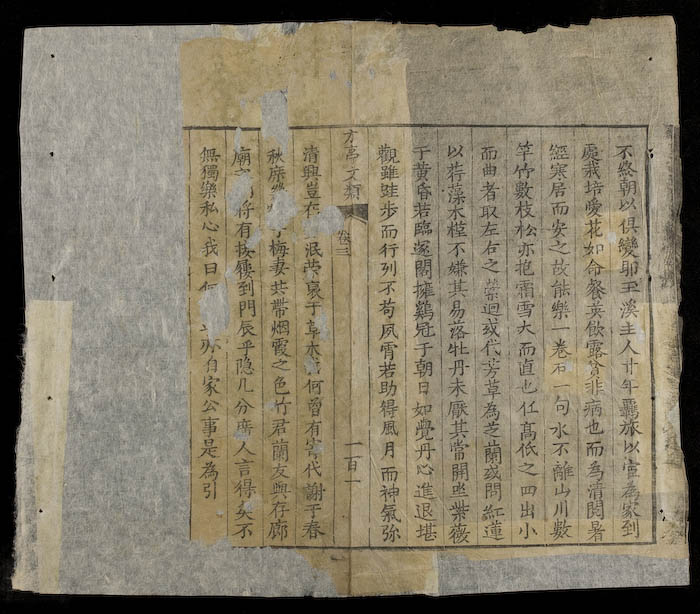 不終朝以俱變耶玉溪主人廿年羈旅以官為家到
處栽培愛花如命餐英飲露貧非病也而為清閱暑
經寒居而安之故能樂一卷石一句水不離山川數
竿竹數枝松亦抱霜雪大而直也任高低之四出小
而曲者取左右之縈迴或代芳草為芝蘭或問紅蓮
以荇藻木槿不嫌其易落牡丹未厭其常開坐紫薇
于黃昏若臨邃閣擁鷄冠于朝日如覺丹心進退堪
觀雖跬步而行列不苟夙霄若助得風月而神氣弥
方亭文類 卷三 一百一
清興豈在 泯茂衰于草木 何曾有 代謝于春
秋 梅妻共帶烟霞之色竹君蘭友與存廊
廟 將有 到門辰乎隐几分席人言得矣不
無獨樂私心我曰 亦自家公事是為引